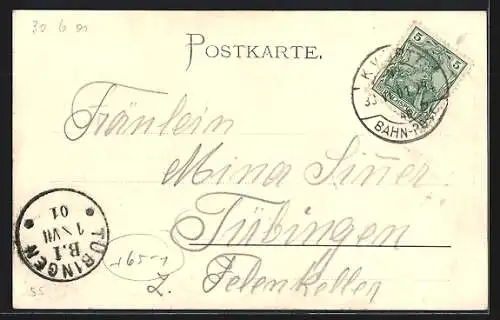 30 6 01
POSTKARTE.
5 5
K.
BAHN-
Fräulein
Mina Siner
Tübingen
z. Felenkeller
TÜBINGEN
B.I
1 VII
01
165-1
55